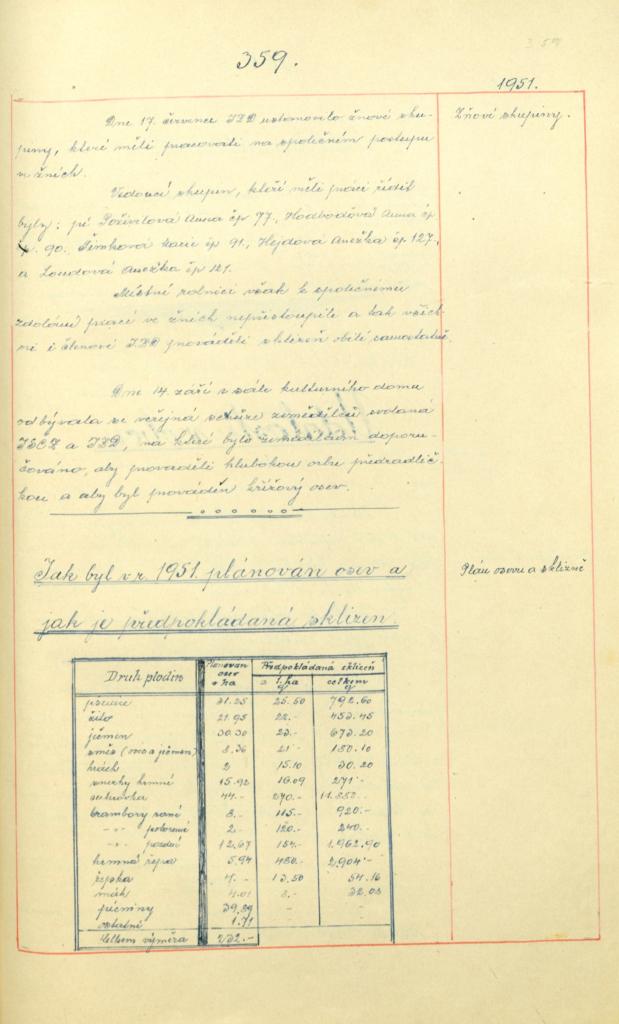 359.
1951.
Žňové skupiny.
Dne 17. července JZD ustanovilo žňové sku-
piny, které měli pracovati na společném postupu
ve žních.
Vedoucí skupin, kteří měli práci řídit
byly: pí Pošivilová Anna čp 77., Hodboďová Anna čp
čp. 90. Šimková Marie čp 91., Hejdová Anežka čp 127.,
a Loudová Anežka čp 121.
Místní rolníci však k společnému
zdolání prací ve žních nepřistoupili a tak všich-
ni i členové JZD prováděli sklizeň obilí samostatně.
Dne 14. září v sále kulturního domu
odbývala se veřejná schůze zemědělců svolaná
JSČZ a JZD, na které bylo zemědělcům doporu-
čováno, aby prováděli hlubokou orbu předradlič-
kou a aby byl prováděn křížový osev.
Jak byl v r. 1951. plánován osev a
Plán osevu a sklizně
jak je předpokládaná sklizen.
Druh plodin Plánován osev v ha Předpokládaná sklizeň
z 1. ha q celkem q
pšenice 31.25 25.50 792.60
žito 21.95 22.- 453.45
ječmen 30.30 23.- 673.20
směs (oves a ječmen) 8.36 21 180.10
hrách 2 15.10 30.20
směsky krmné 15.92 16.09 271.-
cukrovka 44.- 270.- 11.882.-
brambory rané 8.- 115.- 920.-
-"- polorané 2.- 120.- 240.-
-"- pozdní 12.67 154.- 1.962.90
krmná řepa 5.94 480.- 2.904.-
řepka 4.- 13.50 54.16
mák 4.01 8.- 32.08
pícniny 39.89 - -
ostatní 1.71 - -
Celkem výměra 232.-